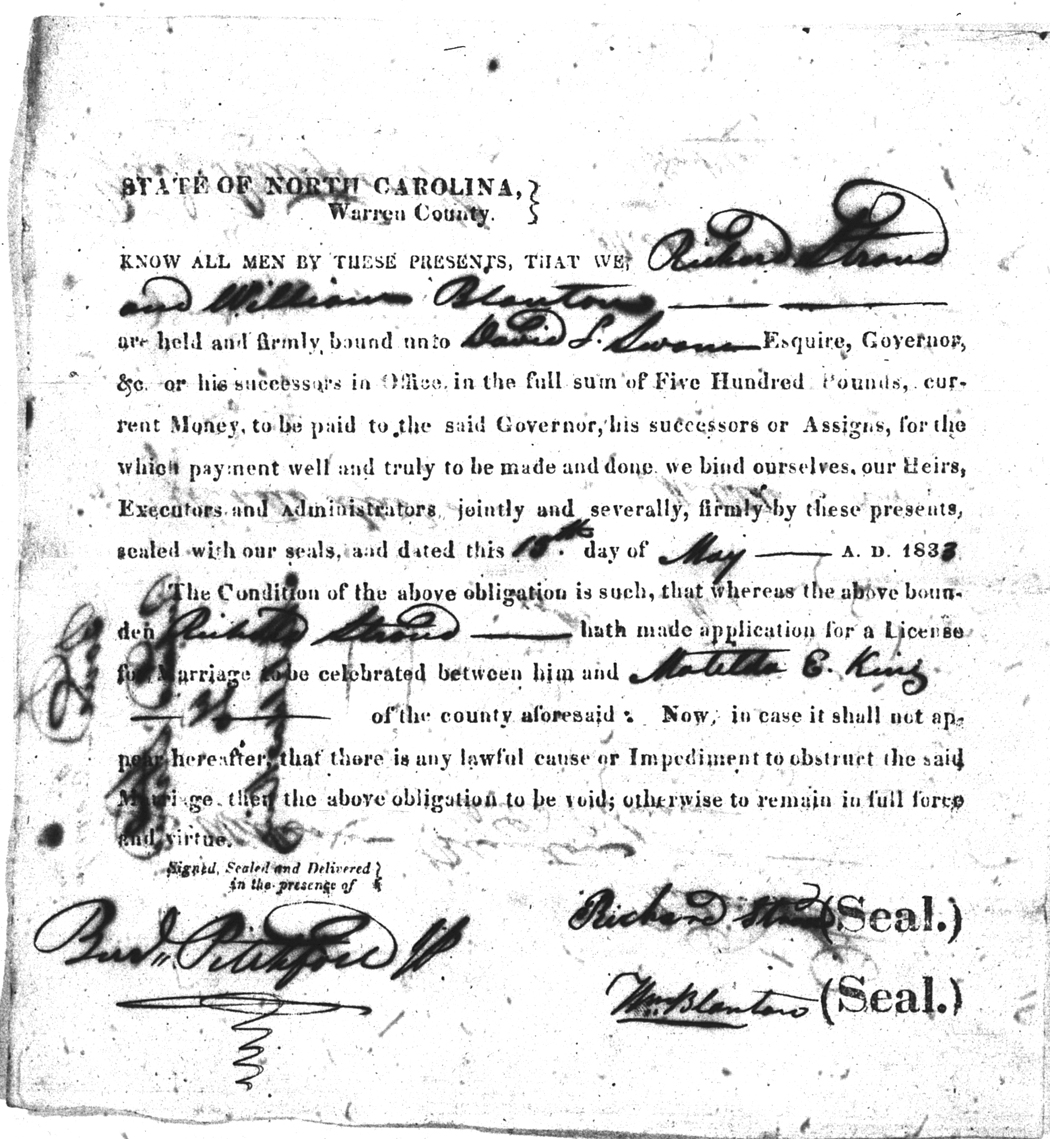 STATE OF NORTH CAROLINA,
Warren County.
KNOW ALL MEN BY THESE PRESENTS, THAT WE, Richard Stroud
and William Blanton
are held and firmly bound unto David L. Swann Esquire, Governor,
&c. or his successors in Office, in the full sum of Five Hundred Pounds, cur-
rent Money, to be paid to the said Governor, his successors or Assigns, for the
which payment well and truly to be made and done, we bind ourselves, our Heirs,
Executors and Administrators jointly and severally, firmly by these presents,
sealed with our seals, and dated this day of May A. D. 1833
The Condition of the above obligation is such, that whereas the above boun-
den Stroud hath made application for a License
for Marriage to be celebrated between him and Matilda E. King
of the county aforesaid: Now, in case it shall not ap-
pear hereafter, that there is any lawful cause or Impediment to obstruct the said
Marriage, then the above obligation to be void; otherwise to remain in full force
and virtue.
Signed, Sealed and Delivered
in the presence of
Richard Stroud (Seal.)
Pitchford
Wm. Blanton (Seal.)